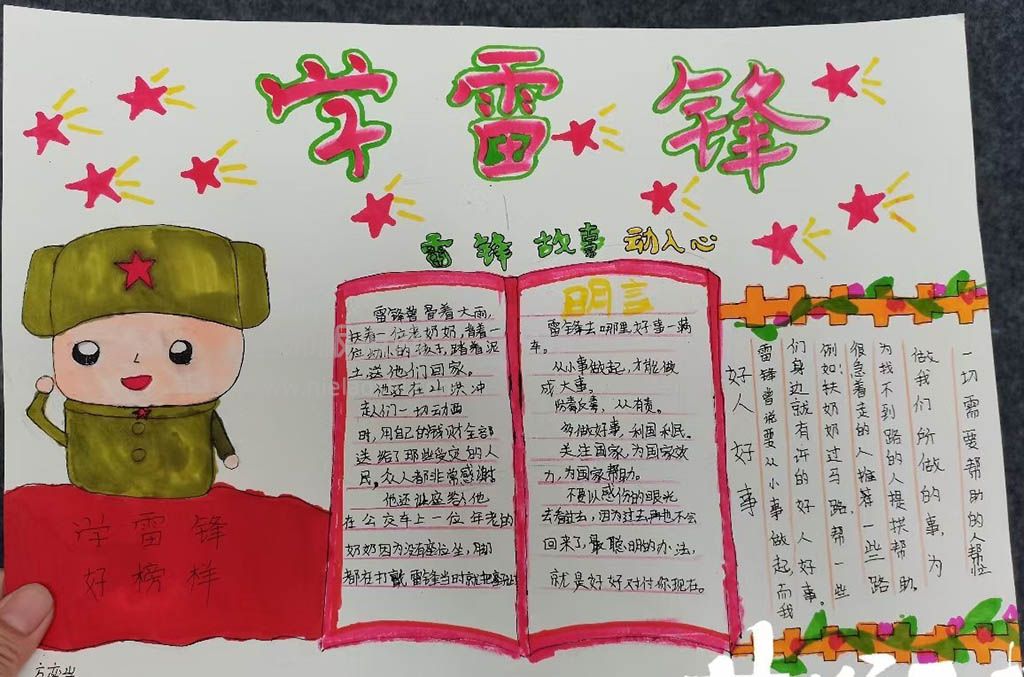 学雷锋
雷锋故事动人心
雷锋曾冒着大雨,
扶着一位老奶奶,背着一
位幼小的孩子,踏着泥
土送他们回家。
他还在山洪冲
走人们一切
时,用自己的钱财全部
送给了那些受灾的人
民。众人都非常感谢
他还让座
在公交车上一位年老的
奶奶因为没有座位坐,脚
都在打颤,雷锋当时就把
名言
雷锋去哪里,好事一满
车。
从小事做起,才能做
成大事。
防毒反毒,从有责。
多做好事,利国利民。
关注国家,为国家效
力,为国家帮助。
不要以感伤的眼光
去看过去,因为过去再也不会
回来了,最聪明的办法,
就是好好对付你现在。
好人好事
雷锋曾说要从小事做起,而我
们身边就有许的好人好事。
例如:扶奶奶过马路帮一些
很急着走的人推荐一些路
为找不到路的人提拱帮助
做我们所做的事,为
一切需要帮助的人帮忙
学雷锋
好榜样